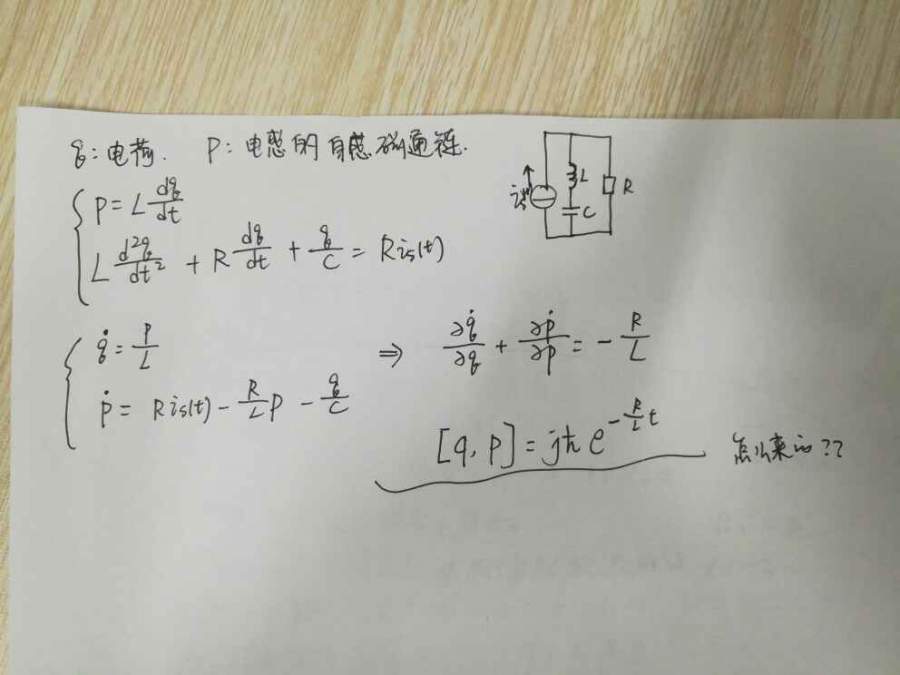 q: 电荷. P: 电感的自感磁通链.
P = L dq/dt
L d²q/dt² + R dq/dt + q/C = R is(t)
is L C R
q̇ = P/L ⇒ ∂q̇/∂q + ∂ṗ/∂p = - R/L
ṗ = R is(t) - R/L P - q/C
[q, p] = jħ e^{-R/L t} 怎么来的??